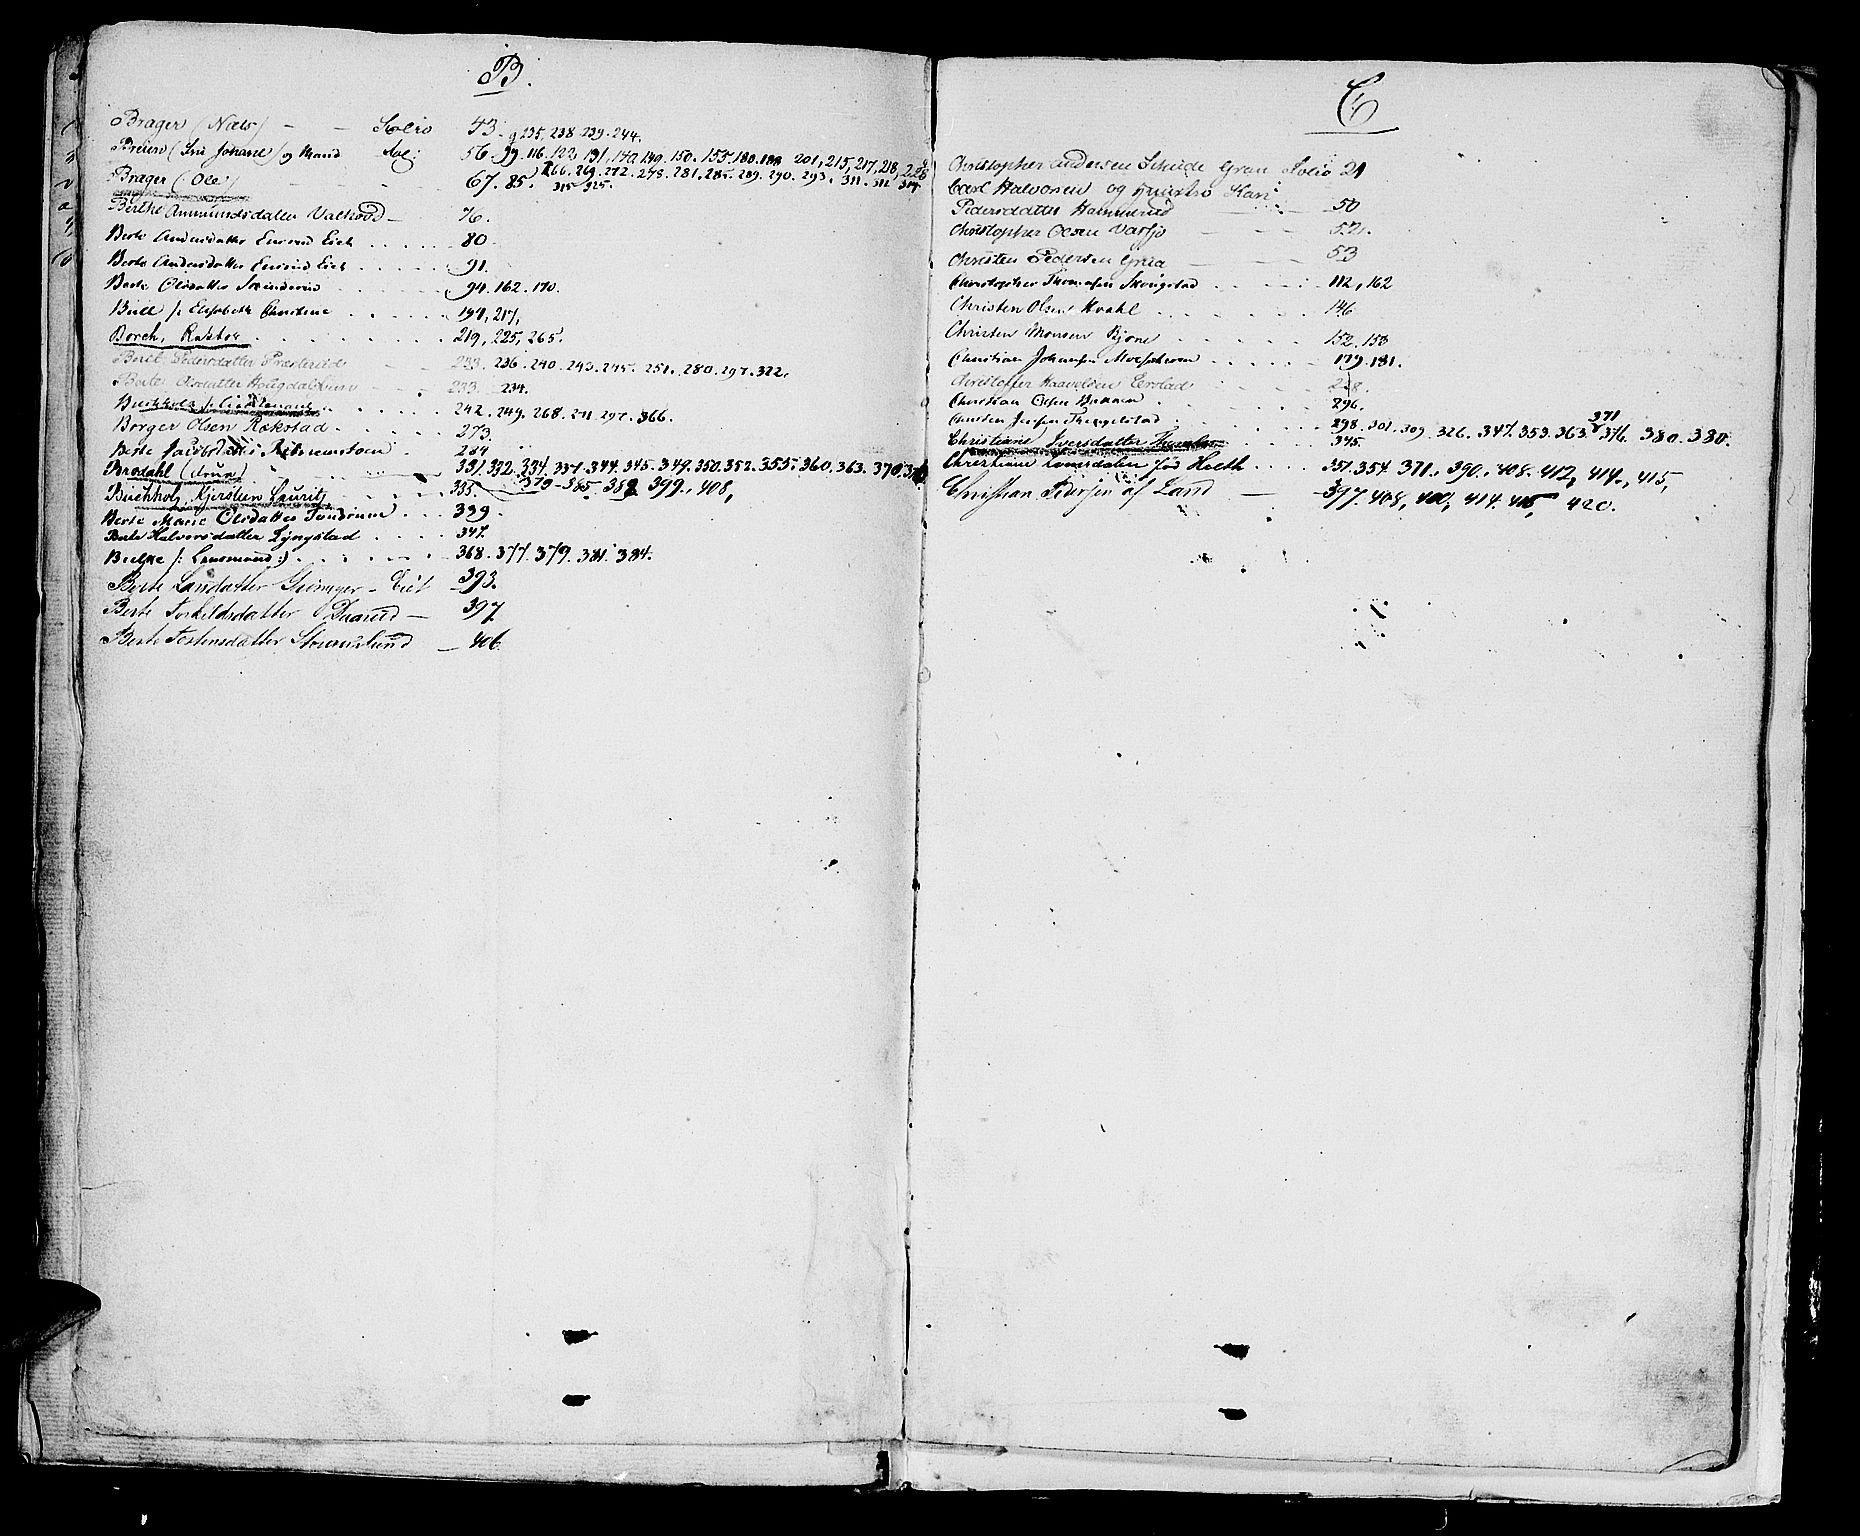 B.
Brager (Niels) - - Folio 43.
235, 238. 239. 244.
Breien (Fru Johane) og Mand Fol: 56. 99. 116. 123. 131, 140. 149. 150. 155. 180. 188. 201, 215, 217, 218, 228
266. 269. 272. 278. 281. 285. 289. 290. 293. 311. 312. 314.
Brager (Ole) - - 67. 85. 315. 325.
Berthe Ammundsdatter Valhovd - 76.
Berte Andersdatter Eich . . . . 80
Berte Andersdatter Eich . . . . . 91.
Berte Olsdatter . . . . . 94. 162. 170.
Bull /: Elisabeth Christine . . . . . 191, 217,
Borch, Rektor . . . . . . . . 219, 225, 265.
Berte Pedersdatter Præsterud 233. 236. 240. 243. 245. 251. 280. 297. 322.
Berte Olsdatter 233. 234.
Buchholz /: . . . . . 242. 249. 268. 271. 297. 366.
Borger Olsen Rækstad . . . . . 273.
Berte Jacobsdatter . . . 284
Brodahl 331. 332. 334. 337. 344. 345. 349. 350. 352. 355. 360. 363. 370.
Buchholz, Kjersten Lauritz 335. 379 - 385. 389. 399. 408,
Berte Marie Olsdatter . . . 339.
Berte Halvorsdatter Lyngstad . . . . 347.
Bielke /: Lensmand :) . . . . . . . 368. 377. 379. 381. 384.
Berte Larsdatter Grinager - Eiet 393.
Berte Torkildsdatter Daarud - 397
Berte Tostensdatter Storanslund - 406.
C.
Christopher Andersen Schiide Gran Folio 21
Carl Halvorsen og Hustro Kari
Pedersdatter Hammerud - 50
Christopher Olsen Vassjø - - - 52.
Christen Pedersen Grua - - 53
Christopher Thomesen Skougstad . . . . : 112, 162
Christen Olsen Kvahl . . . . . 146
Christen Monsen Bjone . . . . . 152. 153
Christian Johansen . . . . . 179. 181.
Christoffer Haavelsen Egstad . . . . 228.
Christian Olsen . . . . . 296.
Christen Jensen Trongelstad . . . . 298. 301. 309. 326. 347. 353. 363. 371 376. 380. 380.
Christiane Iversdatter 345.
Christiane født Hieth . . . . 351. 354. 371., 390., 408. 412, 414., 415,
Christian Pedersen af Land - 397. 408, 410, 414. 415, 420.